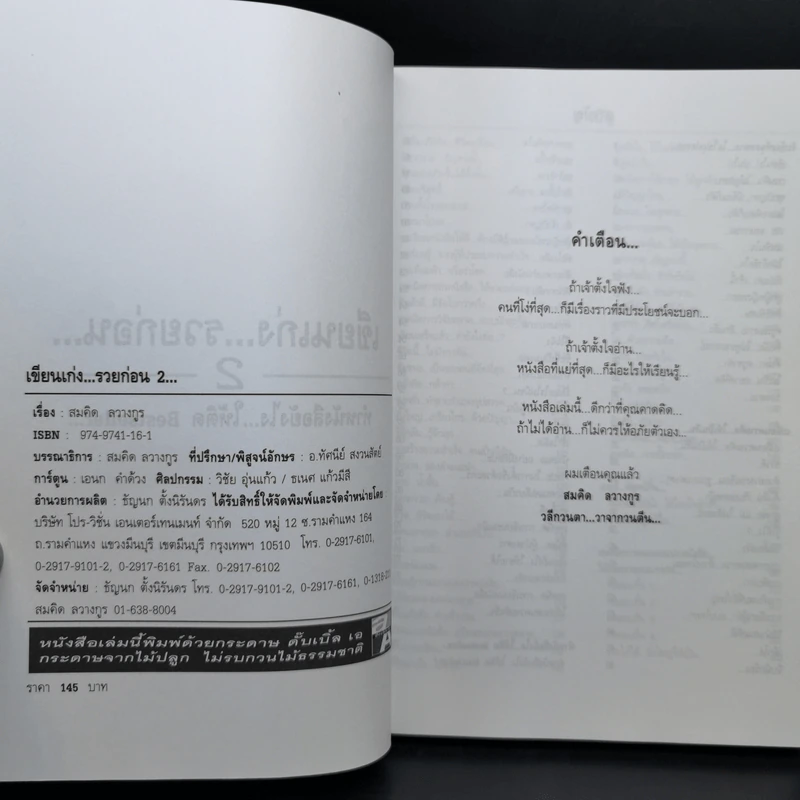 เขียนเก่ง...รวยก่อน 2...
เรื่อง : สมคิด ลวางกูร
ISBN : 974-9741-16-1
บรรณาธิการ : สมคิด ลวางกูร ที่ปรึกษา/พิสูจน์อักษร : อ.ทัศนีย์ สงวนสัตย์
การ์ตูน : เอนก คำด้วง ศิลปกรรม : วิชัย อุ่นแก้ว / ธเนศ แก้วมีสี
อำนวยการผลิต : ธัญนก ตั้งนิรันดร ได้รับสิทธิ์ให้จัดพิมพ์และจัดจำหน่ายโดย
บริษัท โปร-วิชั่น เอนเตอร์เทนเมนท์ จำกัด 520 หมู่ 12 ซ.รามคำแหง 164
ถ.รามคำแหง แขวงมีนบุรี เขตมีนบุรี กรุงเทพฯ 10510 โทร. 0-2917-6101,
0-2917-9101-2, 0-2917-6161 Fax. 0-2917-6102
จัดจำหน่าย : ธัญนก ตั้งนิรันดร โทร. 0-2917-9101-2, 0-2917-6161,
สมคิด ลวางกูร 01-638-8004
หนังสือเล่มนี้พิมพ์ด้วยกระดาษ ดั๊บเบิ้ล เอ
กระดาษจากไม้ปลูก ไม่รบกวนไม้ธรรมชาติ
ราคา 145 บาท
คำเตือน...
ถ้าเจ้าตั้งใจฟัง...
คนที่โง่ที่สุด...ก็มีเรื่องราวที่มีประโยชน์จะบอก...
ถ้าเจ้าตั้งใจอ่าน...
หนังสือที่แย่ที่สุด...ก็มีอะไรให้เรียนรู้...
หนังสือเล่มนี้...ดีกว่าที่คุณคาดคิด...
ถ้าไม่ได้อ่าน...ก็ไม่ควรให้อภัยตัวเอง...
ผมเตือนคุณแล้ว
สมคิด ลวางกูร
วลีกวนตา...วาจากวนตีน...